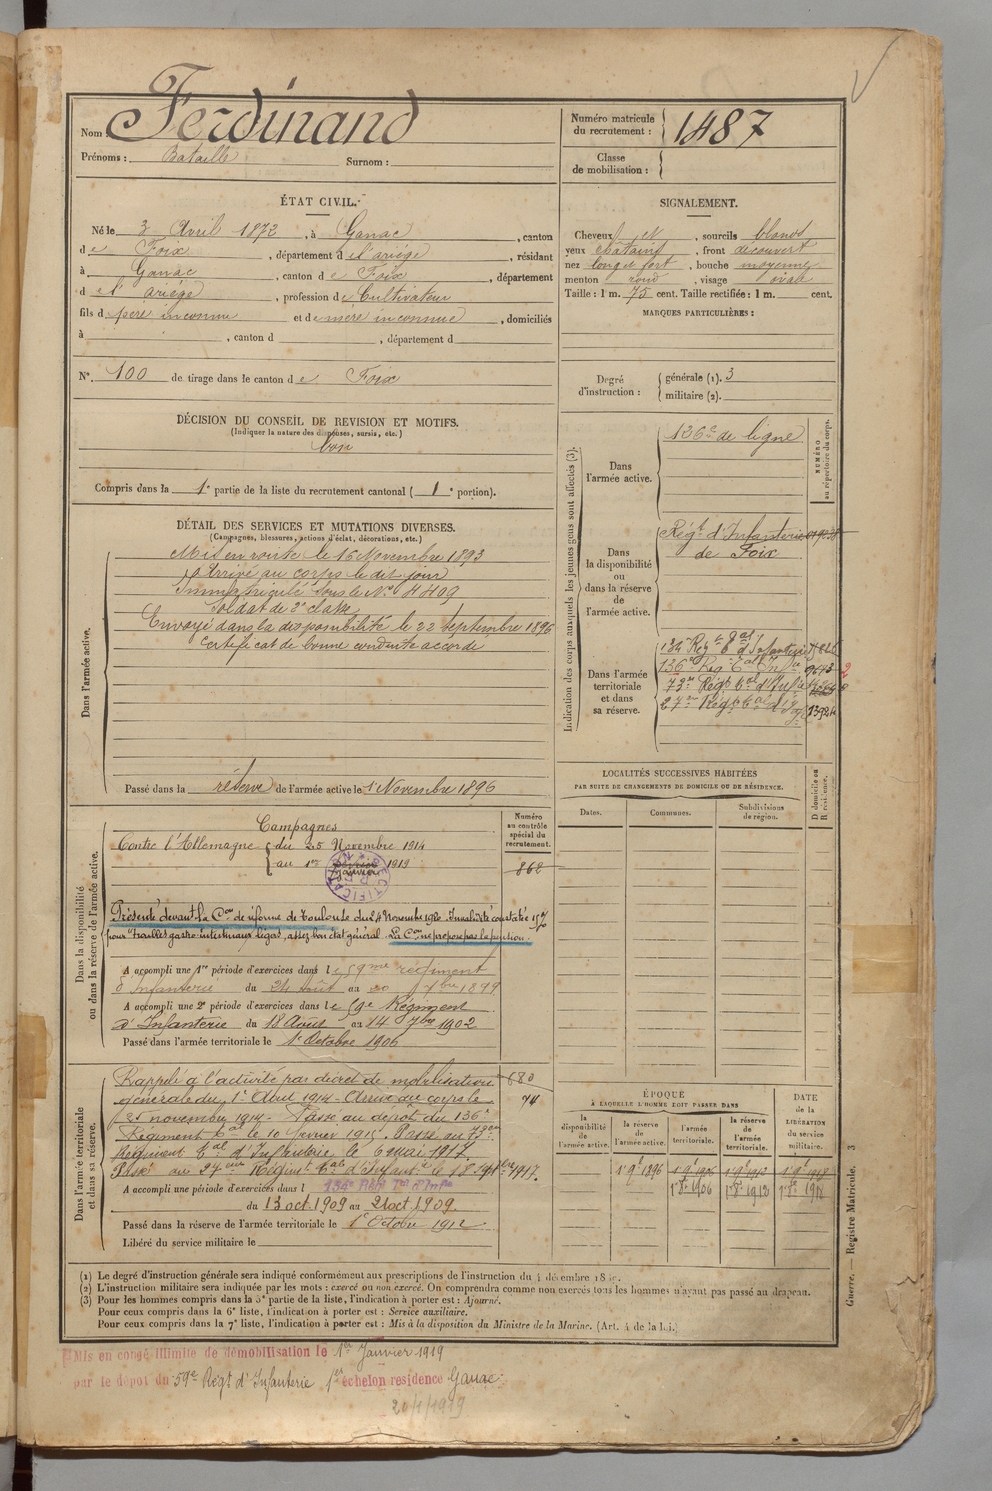 Nom : Ferdinand
Prénoms : Bataille Surnom :
Numéro matricule du recrutement : 1487
Classe de mobilisation :
ÉTAT CIVIL.
Né le 3 Avril 1872, à Ganac, canton
de Foix, département de l'ariége, résidant
à Ganac, canton de Foix, département
de l'ariége, profession de Cultivateur
fils de père inconnu et de mère inconnue, domiciliés
à , canton d , département d
N° 100 de tirage dans le canton de Foix
SIGNALEMENT.
Cheveux et , sourcils blonds
yeux chatains, front découvert
nez long et fort, bouche moyenne
menton rond, visage oval
Taille : 1 m. 75 cent. Taille rectifiée : 1 m. cent.
MARQUES PARTICULIÈRES :
Degré d'instruction : générale (1). 3
militaire (2).
DÉCISION DU CONSEIL DE REVISION ET MOTIFS.
(Indiquer la nature des dispenses, sursis, etc.)
bon
Compris dans la 1e partie de la liste du recrutement cantonal (1e portion).
DÉTAIL DES SERVICES ET MUTATIONS DIVERSES.
(Campagnes, blessures, actions d'éclat, décorations, etc.)
Dans l'armée active.
Mis en route le 16 Novembre 1893
Arrivé au corps le dit jour
Immatriculé sous le N° 4409
Soldat de 2e classe
Envoyé dans la disponibilité le 22 septembre 1896
Certificat de bonne conduite accordé
Passé dans la réserve de l'armée active le 1 Novembre 1896
Indication des corps auxquels les jeunes gens sont affectés (3).
NUMÉRO au répertoire du corps.
Dans l'armée active.
126e de ligne
Dans la disponibilité ou dans la réserve de l'armée active.
Régt d'Infanterie
de Foix
Dans l'armée territoriale et dans sa réserve.
134e Régt tal d'Infanterie
136e Rég. tal Infie 9673
73e Régt tal d'Infie
27e Régt tal d'Ige
LOCALITÉS SUCCESSIVES HABITÉES
PAR SUITE DE CHANGEMENTS DE DOMICILE OU DE RÉSIDENCE.
D domicile ou R résidence.
Dates. Communes. Subdivisions de région.
Numéro au contrôle spécial du recrutement.
862
Dans la disponibilité ou dans la réserve de l'armée active.
Campagnes
Contre l'Allemagne du 25 Novembre 1914
au 1er Janvier 1919
RECTIFICATION
Présenté devant la Con de réforme de Toulouse du 24 Novembre 1920. Invalidité constatée 15%
pour "troubles gastro-intestinaux légers, assez bon état général. La Con ne propose pas la pension.
A accompli une 1re période d'exercices dans le 59me régiment
d'Infanterie du 24 août au 20 7bre 1899
A accompli une 2e période d'exercices dans le 59e Régiment
d'Infanterie du 18 Août au 14 7bre 1902
Passé dans l'armée territoriale le 1 Octobre 1906
Dans l'armée territoriale et dans sa réserve.
Rappelé à l'activité par décret de mobilisation 680
générale du 1 Aout 1914 - Arrivé au corps le 74
25 novembre 1914 - Passé au dépôt du 136e
Régiment tal le 10 fevrier 1915. Passé au 73eme
Régiment tal d'Infanterie le 6 mai 1917.
Passé au 27eme Régiment tal d'Infanie le 18
A accompli une période d'exercices dans l 134e Régt Tal d'Infie
du 13 oct. 1909 au 21 oct. 1909.
Passé dans la réserve de l'armée territoriale le 1 Octobre 1912
Libéré du service militaire le
ÉPOQUE
À LAQUELLE L'HOMME DOIT PASSER DANS
la disponibilité de l'armée active. la réserve de l'armée active. l'armée territoriale. la réserve de l'armée territoriale. DATE de la LIBÉRATION du service militaire.
1 9e 1896 1 9e 1906 1 9e 1912 1 9e 1918
1 8e 1906 1 8e 1912 1 8e 1918
(1) Le degré d'instruction générale sera indiqué conformément aux prescriptions de l'instruction du 4 décembre
(2) L'instruction militaire sera indiquée par les mots : exercé ou non exercé. On comprendra comme non exercés tous les hommes n'ayant pas passé au drapeau.
(3) Pour les hommes compris dans la 5e partie de la liste, l'indication à porter est : Ajourné.
Pour ceux compris dans la 6e liste, l'indication à porter est : Service auxiliaire.
Pour ceux compris dans la 7e liste, l'indication à porter est : Mis à la disposition du Ministre de la Marine. (Art. 4 de la loi.)
Guerre. — Registre Matricule. 3
Mis en congé illimité de démobilisation le 1er Janvier 1919
par le dépot du 59e Régt d'Infanterie 1er échelon résidence Ganac
20/1/1919